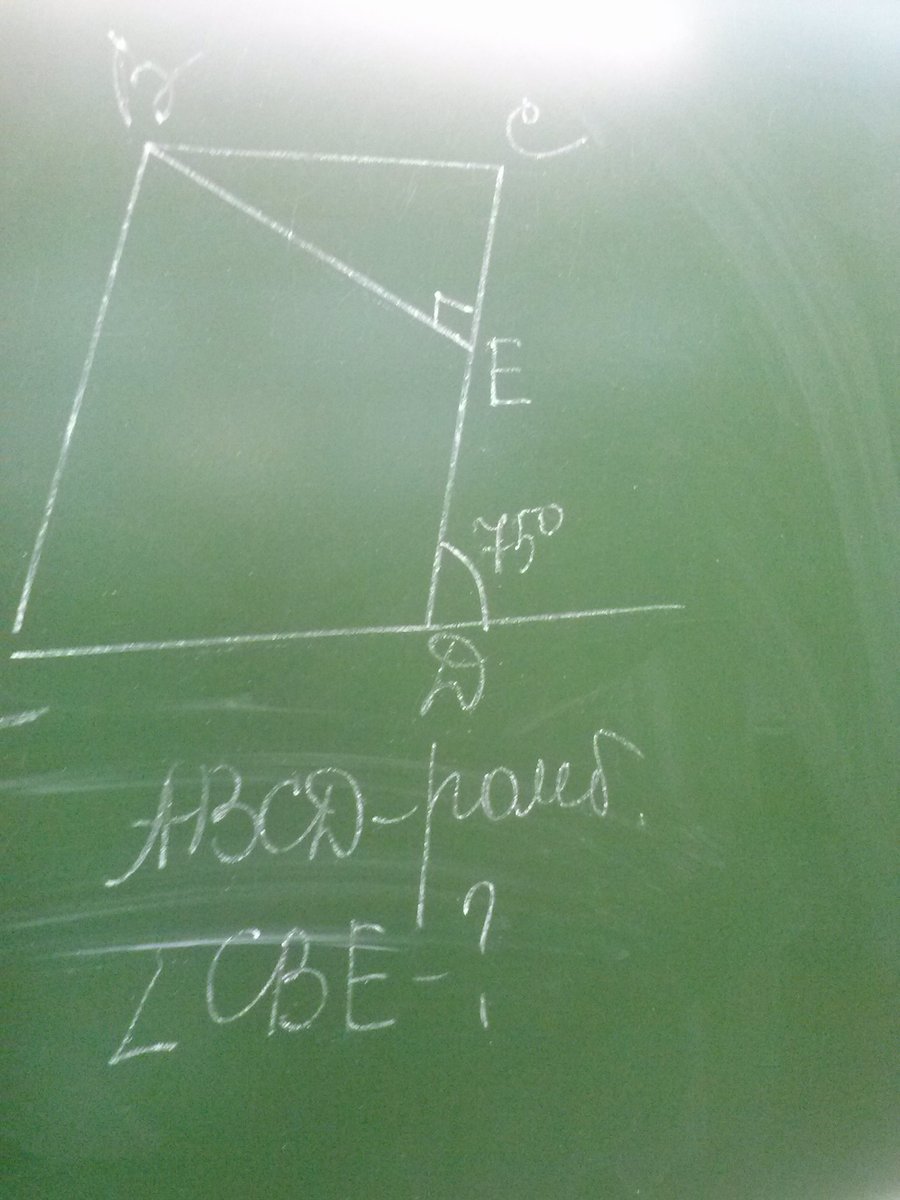 B
C
E
75°
D
ABCD - ромб.
∠CBE - ?